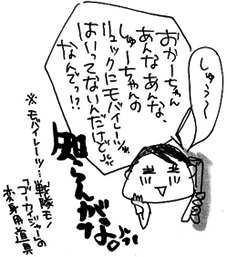 しゅう〜〜
おかーちゃん
あんなあんな、
しゅーちゃんの
リュックにモバイレーツ
はいってないんだけど
なんで!?
知らんがな。
※モバイレーツ…戦隊モノ
「ゴーカイジャー」の
変身用道具